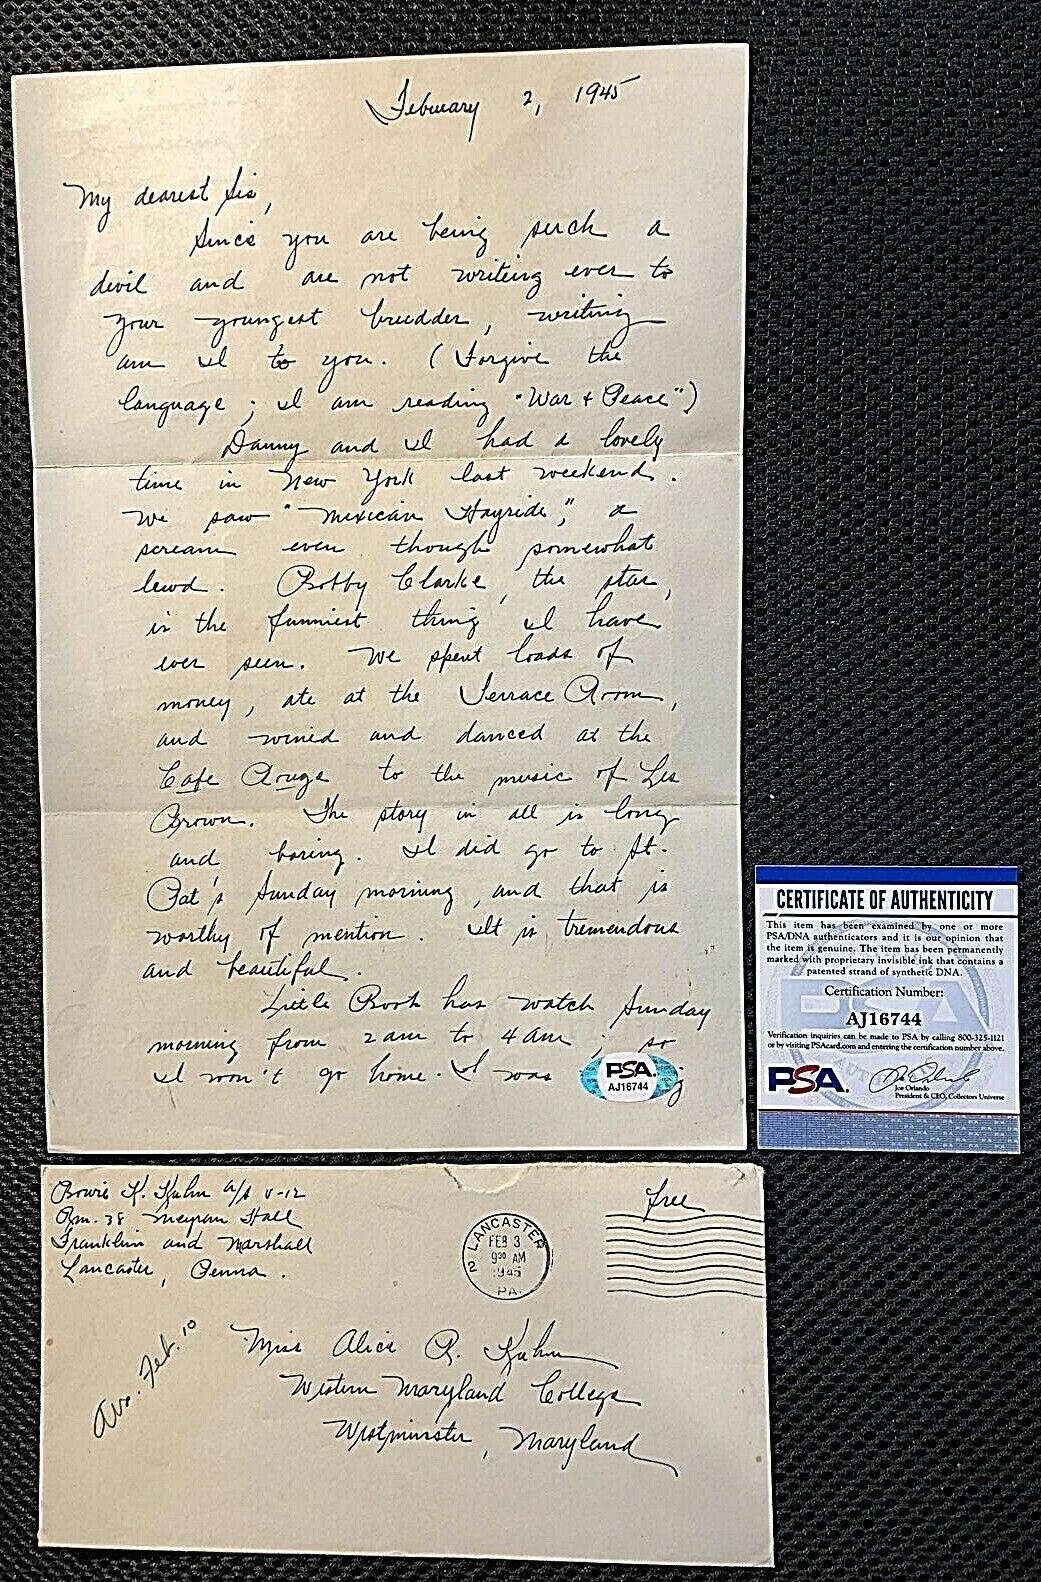 February 2, 1945
My dearest Sis,
Since you are being such a
devil and are not writing ever to
your youngest brudder, writing
am I to you. (Forgive the
language; I am reading "War + Peace")
Danny and I had a lovely
time in New York last weekend.
We saw "Mexican Hayride," a
scream even though somewhat
lewd. Bobby Clarke, the star,
is the funniest thing I have
ever seen. We spent loads of
money, ate at the Terrace Room,
and wined and danced at the
Cafe Rouge to the music of Les
Brown. The story in all is long
and boring. I did go to St.
Pat's Sunday morning, and that is
worthy of mention. It is tremendous
and beautiful.
Little Rock has watch Sunday
morning from 2 am to 4 am; so
I won't go home. I was
PSA
AJ16744
CERTIFICATE OF AUTHENTICITY
This item has been examined by one or more
PSA/DNA authenticators and it is our opinion that
the item is genuine. The item has been permanently
marked with proprietary invisible ink that contains a
patented strand of synthetic DNA.
Certification Number:
AJ16744
Verification inquiries can be made to PSA by calling 800-325-1121
or by visiting PSAcard.com and entering the certification number above.
PSA.
Joe Orlando
Joe Orlando
President & CEO, Collectors Universe
Bowie K. Kuhn A/S V-12
Rm. 38 Meyran Hall
Franklin and Marshall
Lancaster, Penna.
LANCASTER
2
FEB 3
9 30 AM
1945
PA.
Free
Miss Alice R. Kuhn
Western Maryland College
Westminster, Maryland
Feb. 10